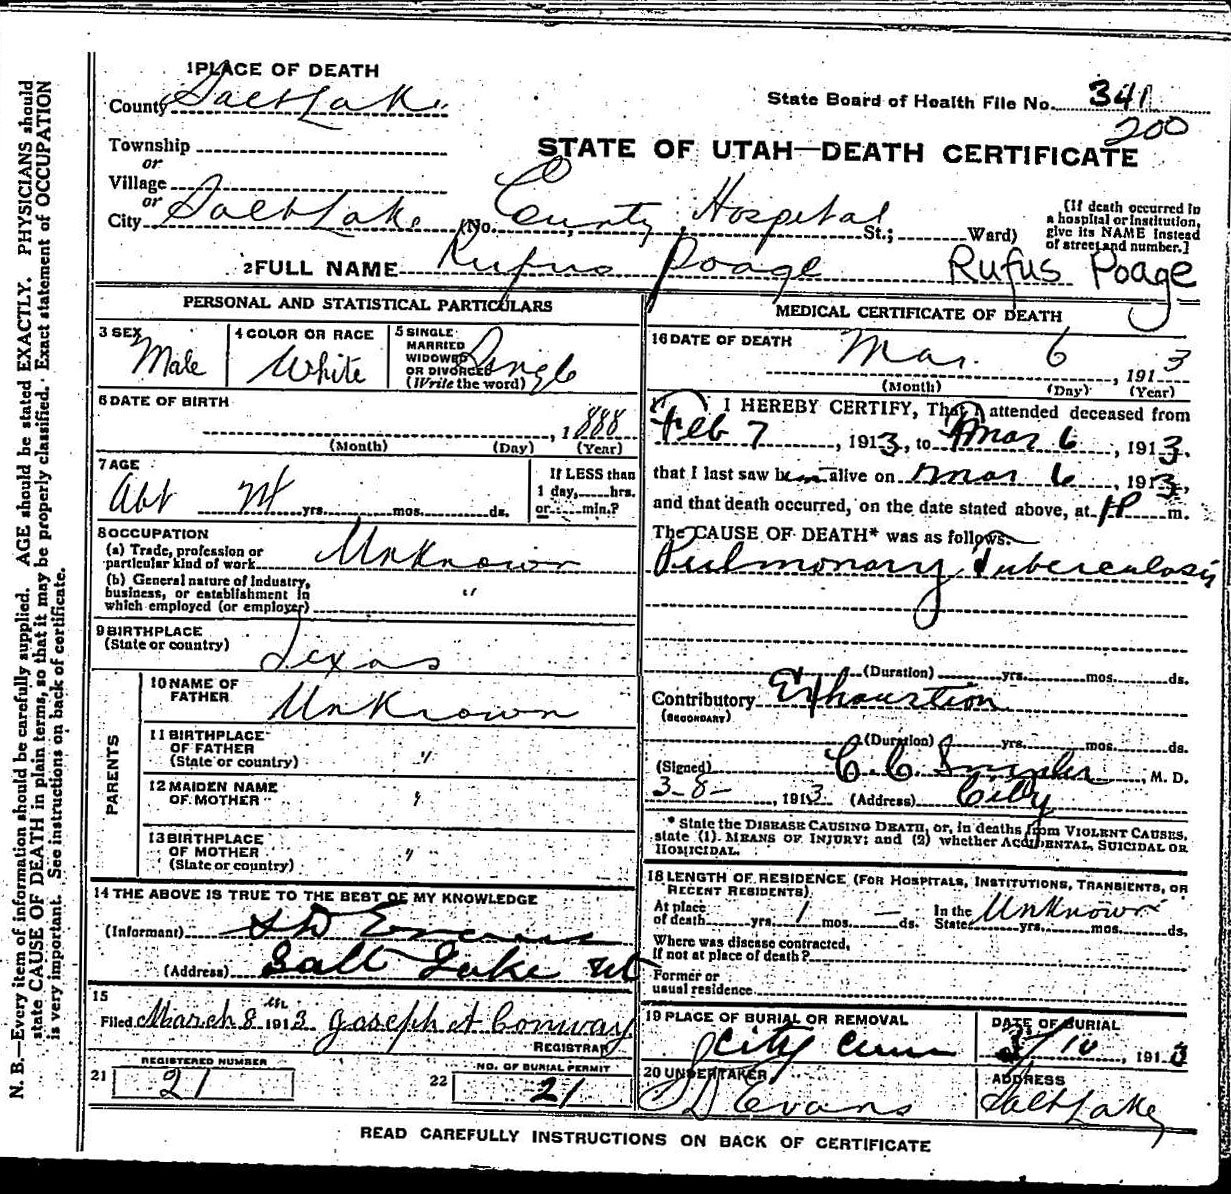 1 PLACE OF DEATH
County Salt Lake
State Board of Health File No. 341
200
Township
or
Village
or
STATE OF UTAH—DEATH CERTIFICATE
City Salt Lake (No. County Hospital St.; Ward)
[If death occurred in
a hospital or institution,
give its NAME instead
of street and number.]
2 FULL NAME Rufus Poage Rufus Poage
PERSONAL AND STATISTICAL PARTICULARS
3 SEX Male
4 COLOR OR RACE White
5 SINGLE
MARRIED
WIDOWED
OR DIVORCED
(Write the word) Single
6 DATE OF BIRTH
, 1888
(Month) (Day) (Year)
7 AGE
Abt yrs. mos. ds.
If LESS than
1 day, hrs.
or min.?
8 OCCUPATION
(a) Trade, profession or
particular kind of work Unknown
(b) General nature of industry,
business, or establishment in
which employed (or employer) "
9 BIRTHPLACE
(State or country) Texas
PARENTS
10 NAME OF
FATHER Unknown
11 BIRTHPLACE
OF FATHER
(State or country) "
12 MAIDEN NAME
OF MOTHER "
13 BIRTHPLACE
OF MOTHER
(State or country) "
14 THE ABOVE IS TRUE TO THE BEST OF MY KNOWLEDGE
(Informant) S D Evans
(Address) Salt Lake Ut
15
Filed March 8 th 1913 Joseph A Conway
REGISTRAR
REGISTERED NUMBER
21 21
NO. OF BURIAL PERMIT
22 21
MEDICAL CERTIFICATE OF DEATH
16 DATE OF DEATH
Mar. 6, 1913
(Month) (Day) (Year)
17 I HEREBY CERTIFY, That I attended deceased from
Feb 7, 1913, to Mar 6, 1913.
that I last saw him alive on Mar 6, 1913,
and that death occurred, on the date stated above, at 1P m.
The CAUSE OF DEATH* was as follows:
Pulmonary Tuberculosis
(Duration) yrs. mos. ds.
Contributory Exhaustion
(SECONDARY)
(Duration) yrs. mos. ds.
(Signed) C. C. , M. D.
3-8-, 1913 (Address) City
* State the DISEASE CAUSING DEATH, or, in deaths from VIOLENT CAUSES,
state (1) MEANS OF INJURY; and (2) whether ACCIDENTAL, SUICIDAL OR
HOMICIDAL.
18 LENGTH OF RESIDENCE (FOR HOSPITALS, INSTITUTIONS, TRANSIENTS, OR
RECENT RESIDENTS)
At place
of death yrs. 1 mos. — ds.
In the
State Unknown yrs. mos. ds.
Where was disease contracted,
If not at place of death?
Former or
usual residence
19 PLACE OF BURIAL OR REMOVAL
City Cem
DATE OF BURIAL
3/10, 1913
20 UNDERTAKER
S D Evans
ADDRESS
Salt Lake
READ CAREFULLY INSTRUCTIONS ON BACK OF CERTIFICATE
N. B.—Every item of information should be carefully supplied. AGE should be stated EXACTLY. PHYSICIANS should
state CAUSE OF DEATH in plain terms, so that it may be properly classified. Exact statement of OCCUPATION
is very important. See instructions on back of certificate.